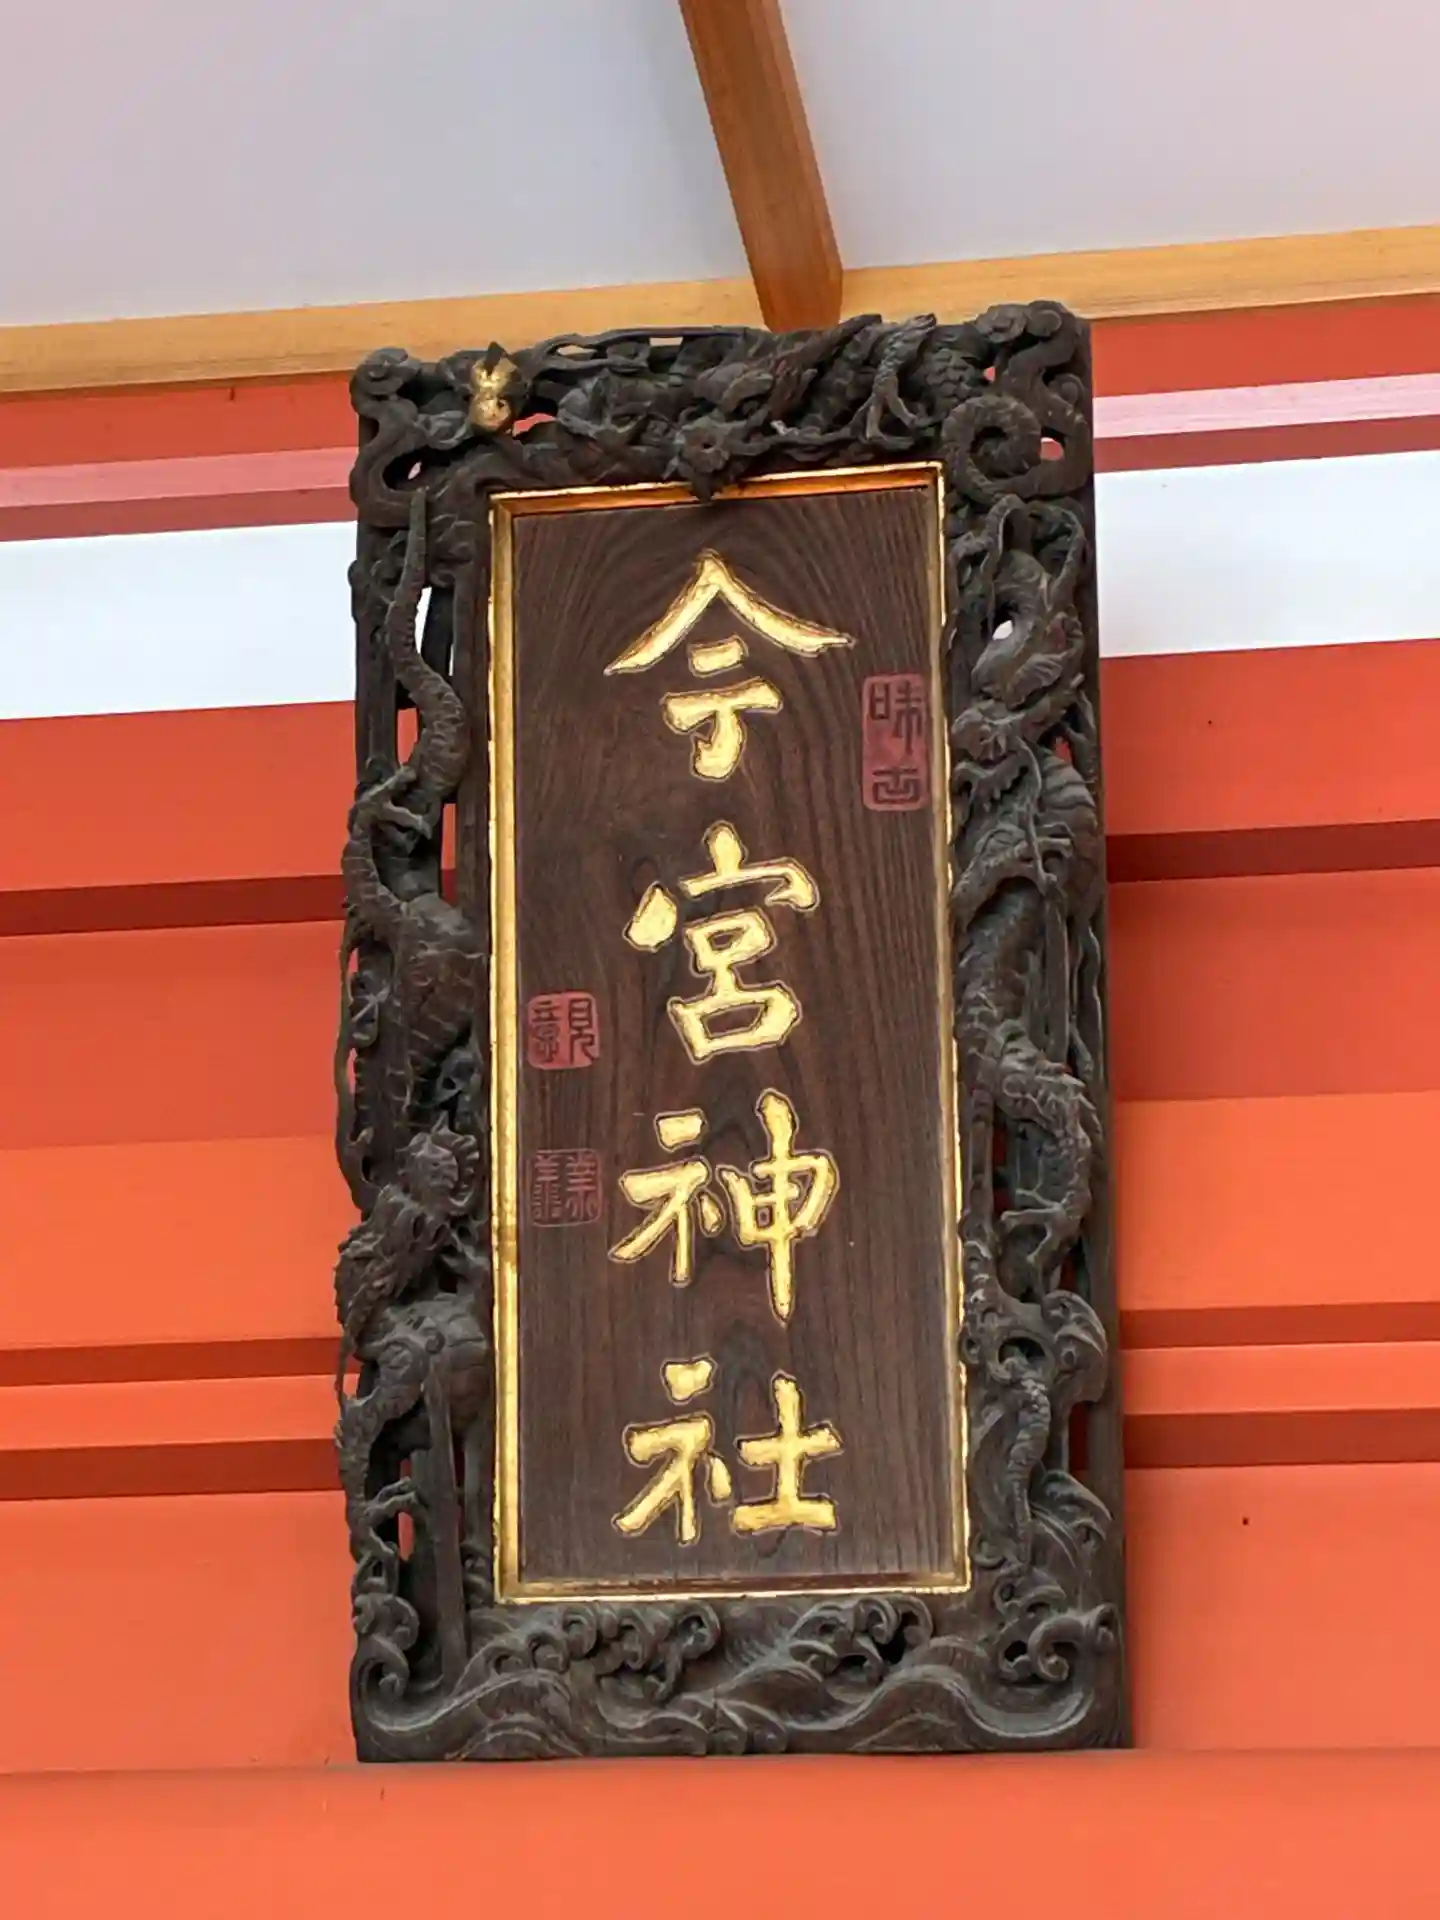 今宮神社